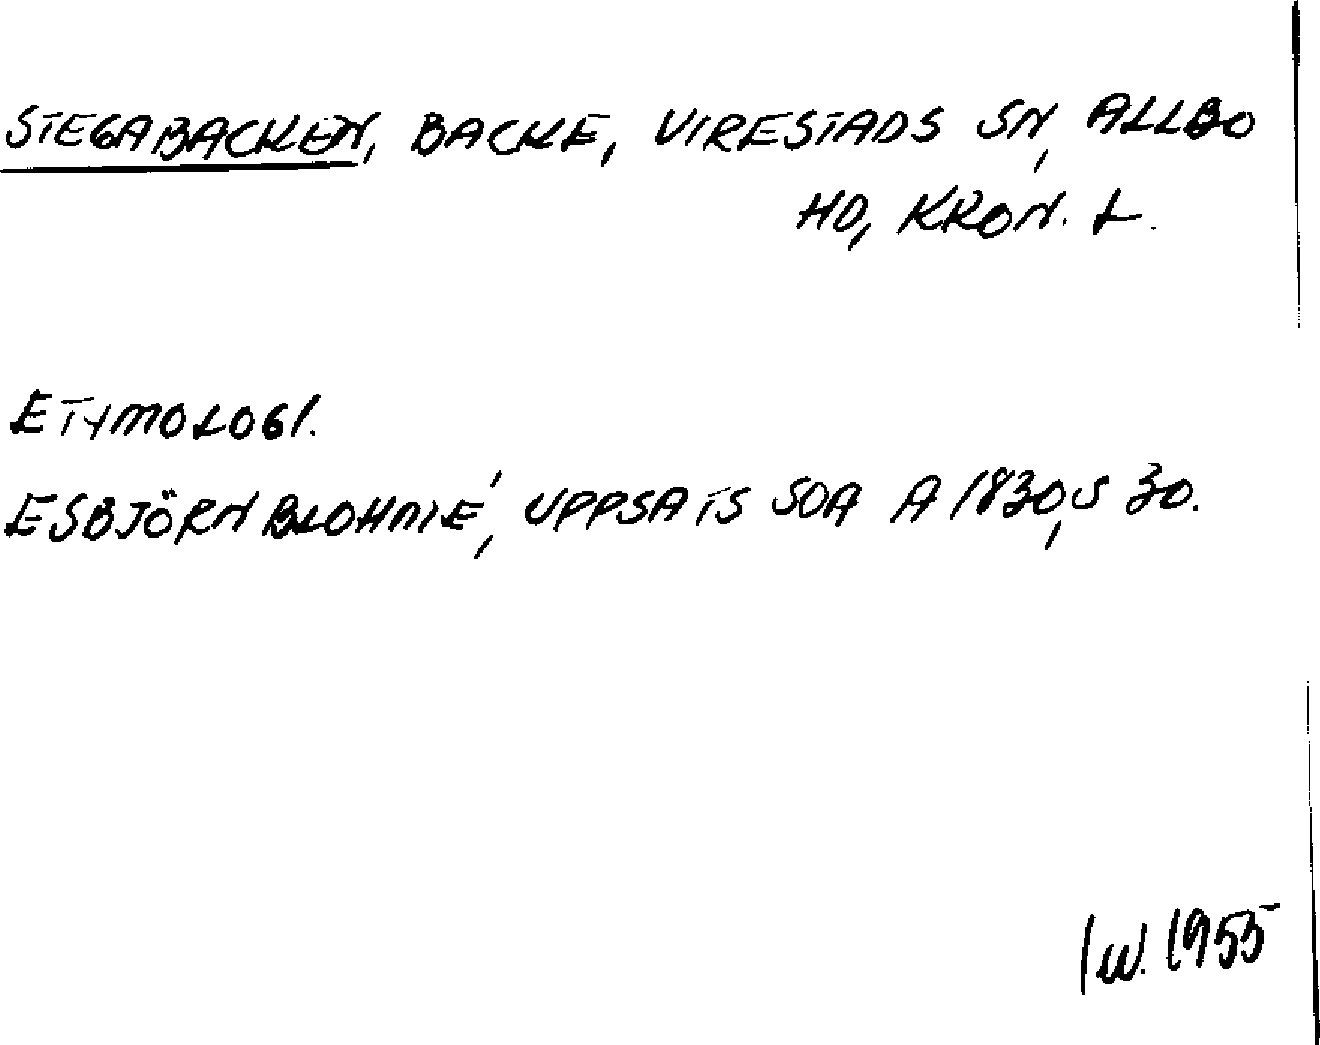 STEGABACKEN, BACKE, VIRESTADS SN, ALLBO
HD, KRON. L.
ETYMOLOGI.
ESBJÖRN BLOHMÉ, UPPSATS SOA A 1830, S 30.
1955